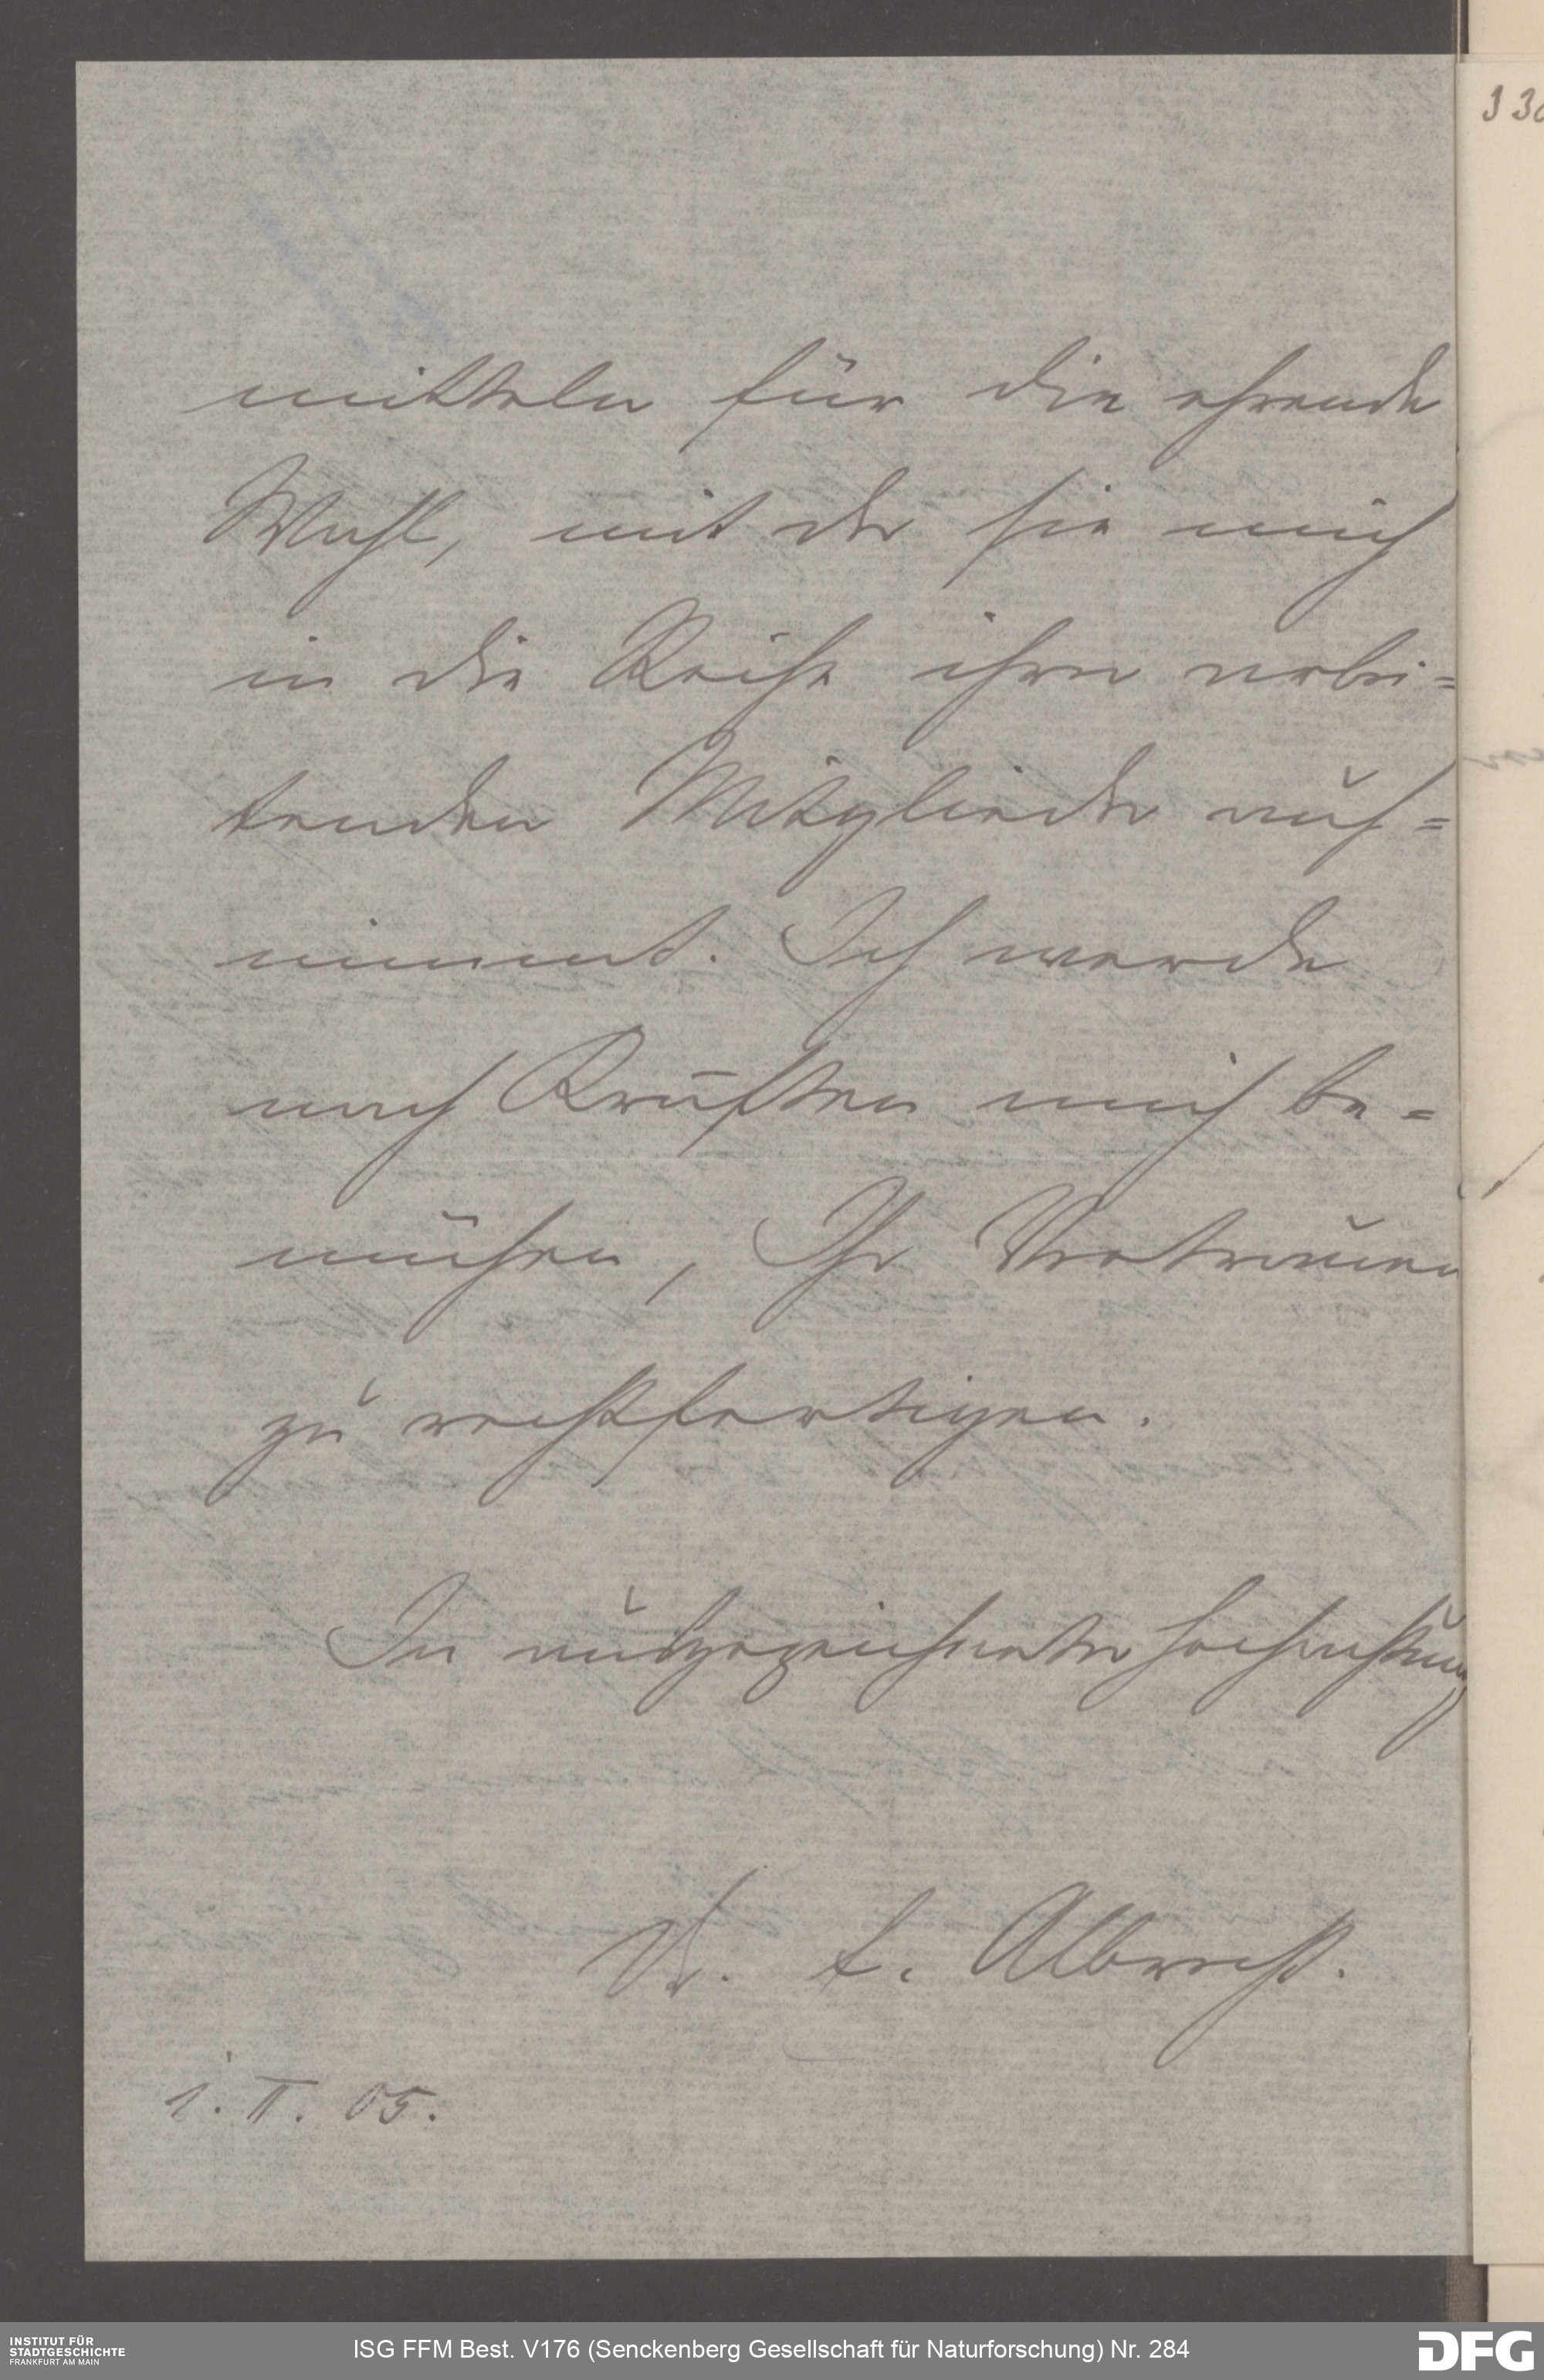 mitteln für die ehrende
Wahl, mit der sie mich
in die Reihe ihrer arbei=
tenden Mitglieder auf=
nimmt. Ich werde
nach Kräften mich be=
mühen, Ihr Vertrauen
zu rechtfertigen.
In ausgezeichneter Hochachtung
Dr. E. Albrecht.
1. II. 05.
330
INSTITUT FÜR
STADTGESCHICHTE
FRANKFURT AM MAIN
ISG FFM Best. V176 (Senckenberg Gesellschaft für Naturforschung) Nr. 284
DFG